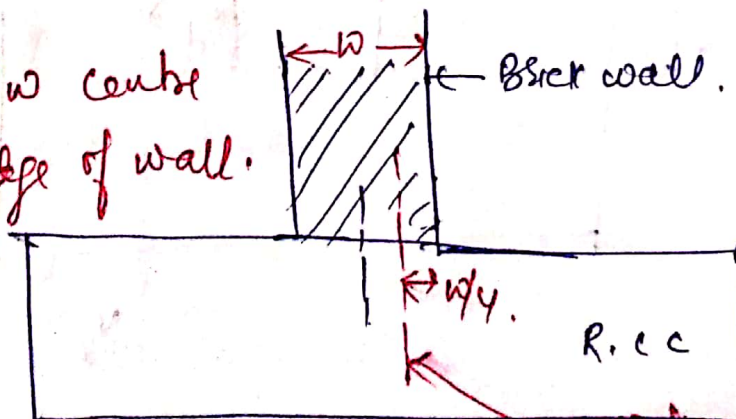 w centre
edge of wall.
w
Brick wall.
w/4.
R.C C